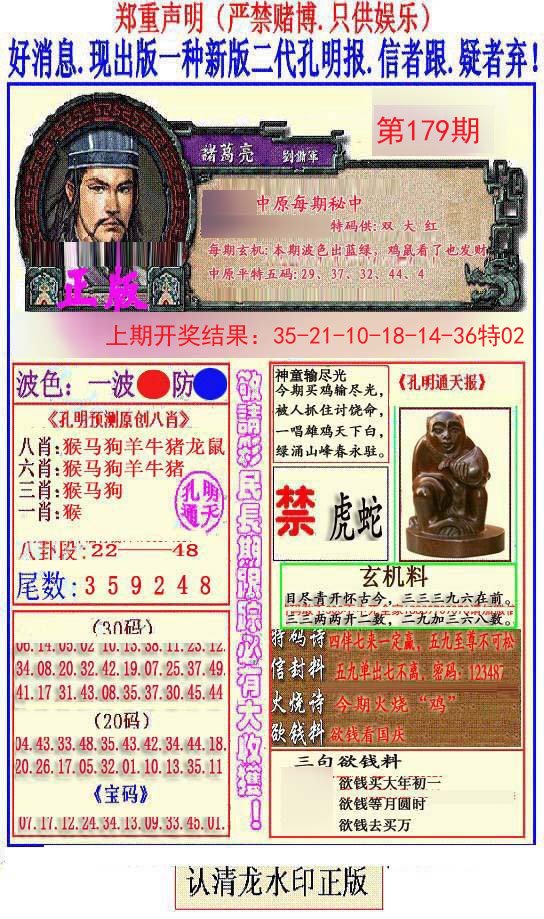 郑重声明（严禁赌博.只供娱乐）
好消息.现出版一种新版二代孔明报.信者跟.疑者弃!
第179期
諸葛亮 劉備軍
中原每期秘中
特码供: 双 大 红
每期玄机: 本期波色出蓝绿, 鸡鼠看了也发财
中原平特五码: 29、37、32、44、4
正版
上期开奖结果: 35-21-10-18-14-36特02
波色: 一波 防
《孔明预测原创八肖》
八肖: 猴马狗羊牛猪龙鼠
六肖: 猴马狗羊牛猪
三肖: 猴马狗
一肖: 猴
孔明
通天
八卦段: 22——48
尾数: 3 5 9 2 4 8
(30码)
06.14.05.02.10.13.38.11.23.12.
34.08.20.32.42.19.07.25.37.49.
41.17.31.43.08.35.37.30.45.44
(20码)
04.43.33.48.35.43.42.34.44.18.
20.26.17.05.32.01.10.13.35.11
《宝码》
07.17.12.24.34.13.09.33.45.01.
敬請彩民長期跟踪必有大收獲!
神童输尽光
今期买鸡输尽光,
被人抓住讨饶命,
一唱雄鸡天下白,
绿涌山峰春永驻。
《孔明通天报》
禁 虎蛇
玄机料
目尽青开怀古今, 三三三九六在前。
三三两两开二数, 二九加三六八数。
特码诗 四伴七来一定赢, 五九至尊不可松
信封料 五九单出七不离, 密码: 123487
火烧诗 今期火烧“鸡”
欲钱料 欲钱看国庆
三句欲钱料
欲钱买大年初一
欲钱等月圆时
欲钱去买万
认清龙水印正版